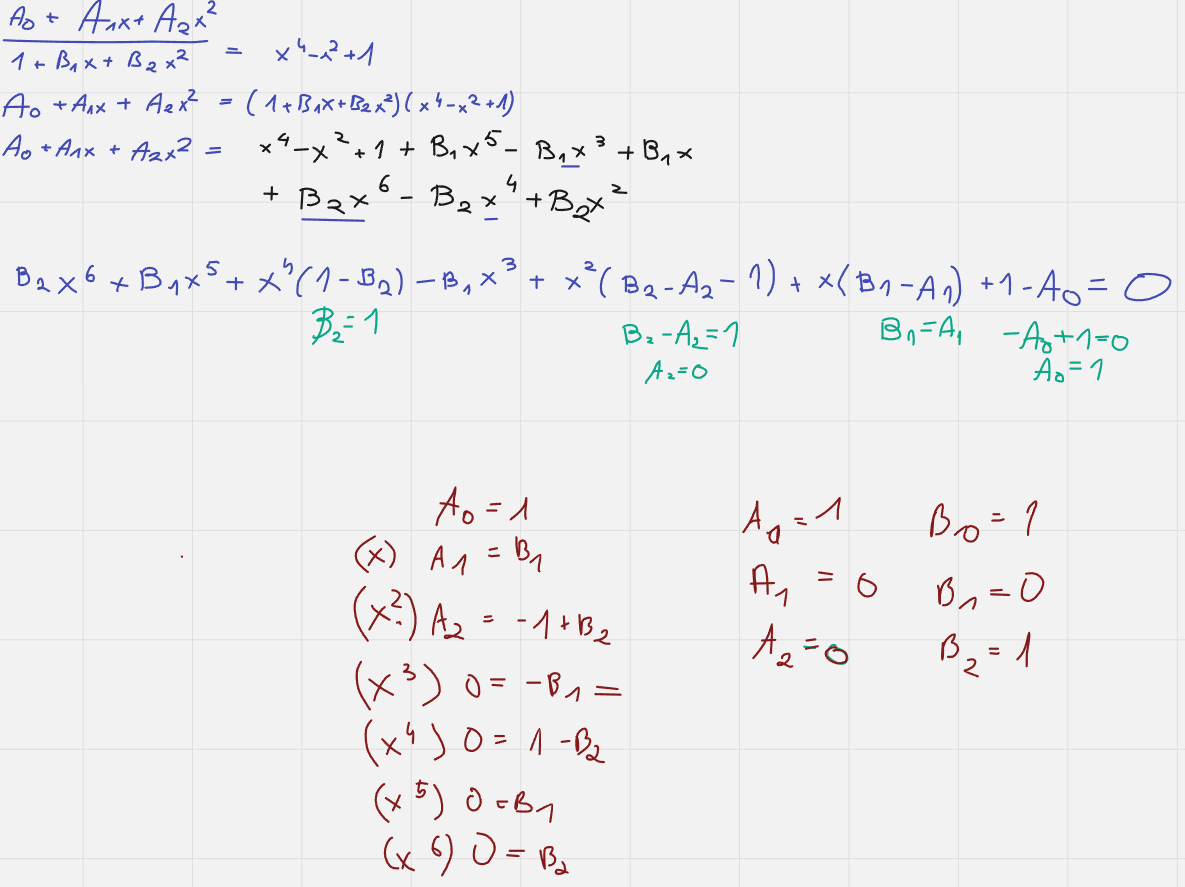 A₀ + A₁x + A₂x²
1 + B₁x + B₂x² = x⁴-x²+1
A₀ + A₁x + A₂x² = (1+B₁x+B₂x²)(x⁴-x²+1)
A₀ + A₁x + A₂x² = x⁴-x²+1 + B₁x⁵ - B₁x³ + B₁x
+ B₂x⁶ - B₂x⁴ + B₂x²
B₂x⁶ + B₁x⁵ + x⁴(1-B₂) - B₁x³ + x²(B₂-A₂-1) + x(B₁-A₁) +1-A₀ = 0
B₂=1 B₂-A₂=1 B₁=A₁ -A₀+1=0
A₂=0 A₀=1
A₀ = 1
(x) A₁ = B₁
(x²) A₂ = -1+B₂
(x³) 0 = -B₁ =
(x⁴) 0 = 1-B₂
(x⁵) 0 = B₁
(x⁶) 0 = B₂
A₀ = 1 B₀ = 1
A₁ = 0 B₁ = 0
A₂ = 0 B₂ = 1